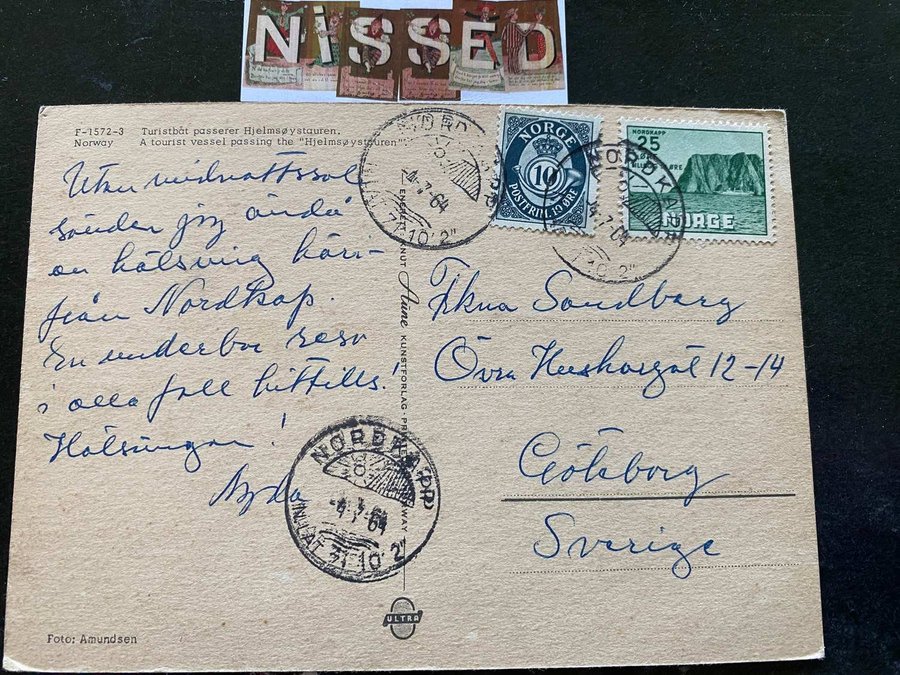 NiSSED
F-1572-3 Turistbåt passerer Hjelmsøystauren.
Norway A tourist vessel passing the "Hjelmsøystauren".
Utan midnattssol
sänder jag ändå
en hälsning här-
från Nordkap.
En underbar resa
i alla fall hittills!
Hälsningar!
NORDKAPP
N. LAT 71° 10' 2"
Foto: Amundsen
ENERETT: KNUT Aune KUNSTFORLAG
ULTRA
NORGE
10
POSTFRIM. 15 ØRE
NORDKAPP
25
ØRE
NORGE
NORDKAPP
4-7-64
71° 10' 2"
Sandberg
Övra Huskargat 12-14
Göteborg
Sverige